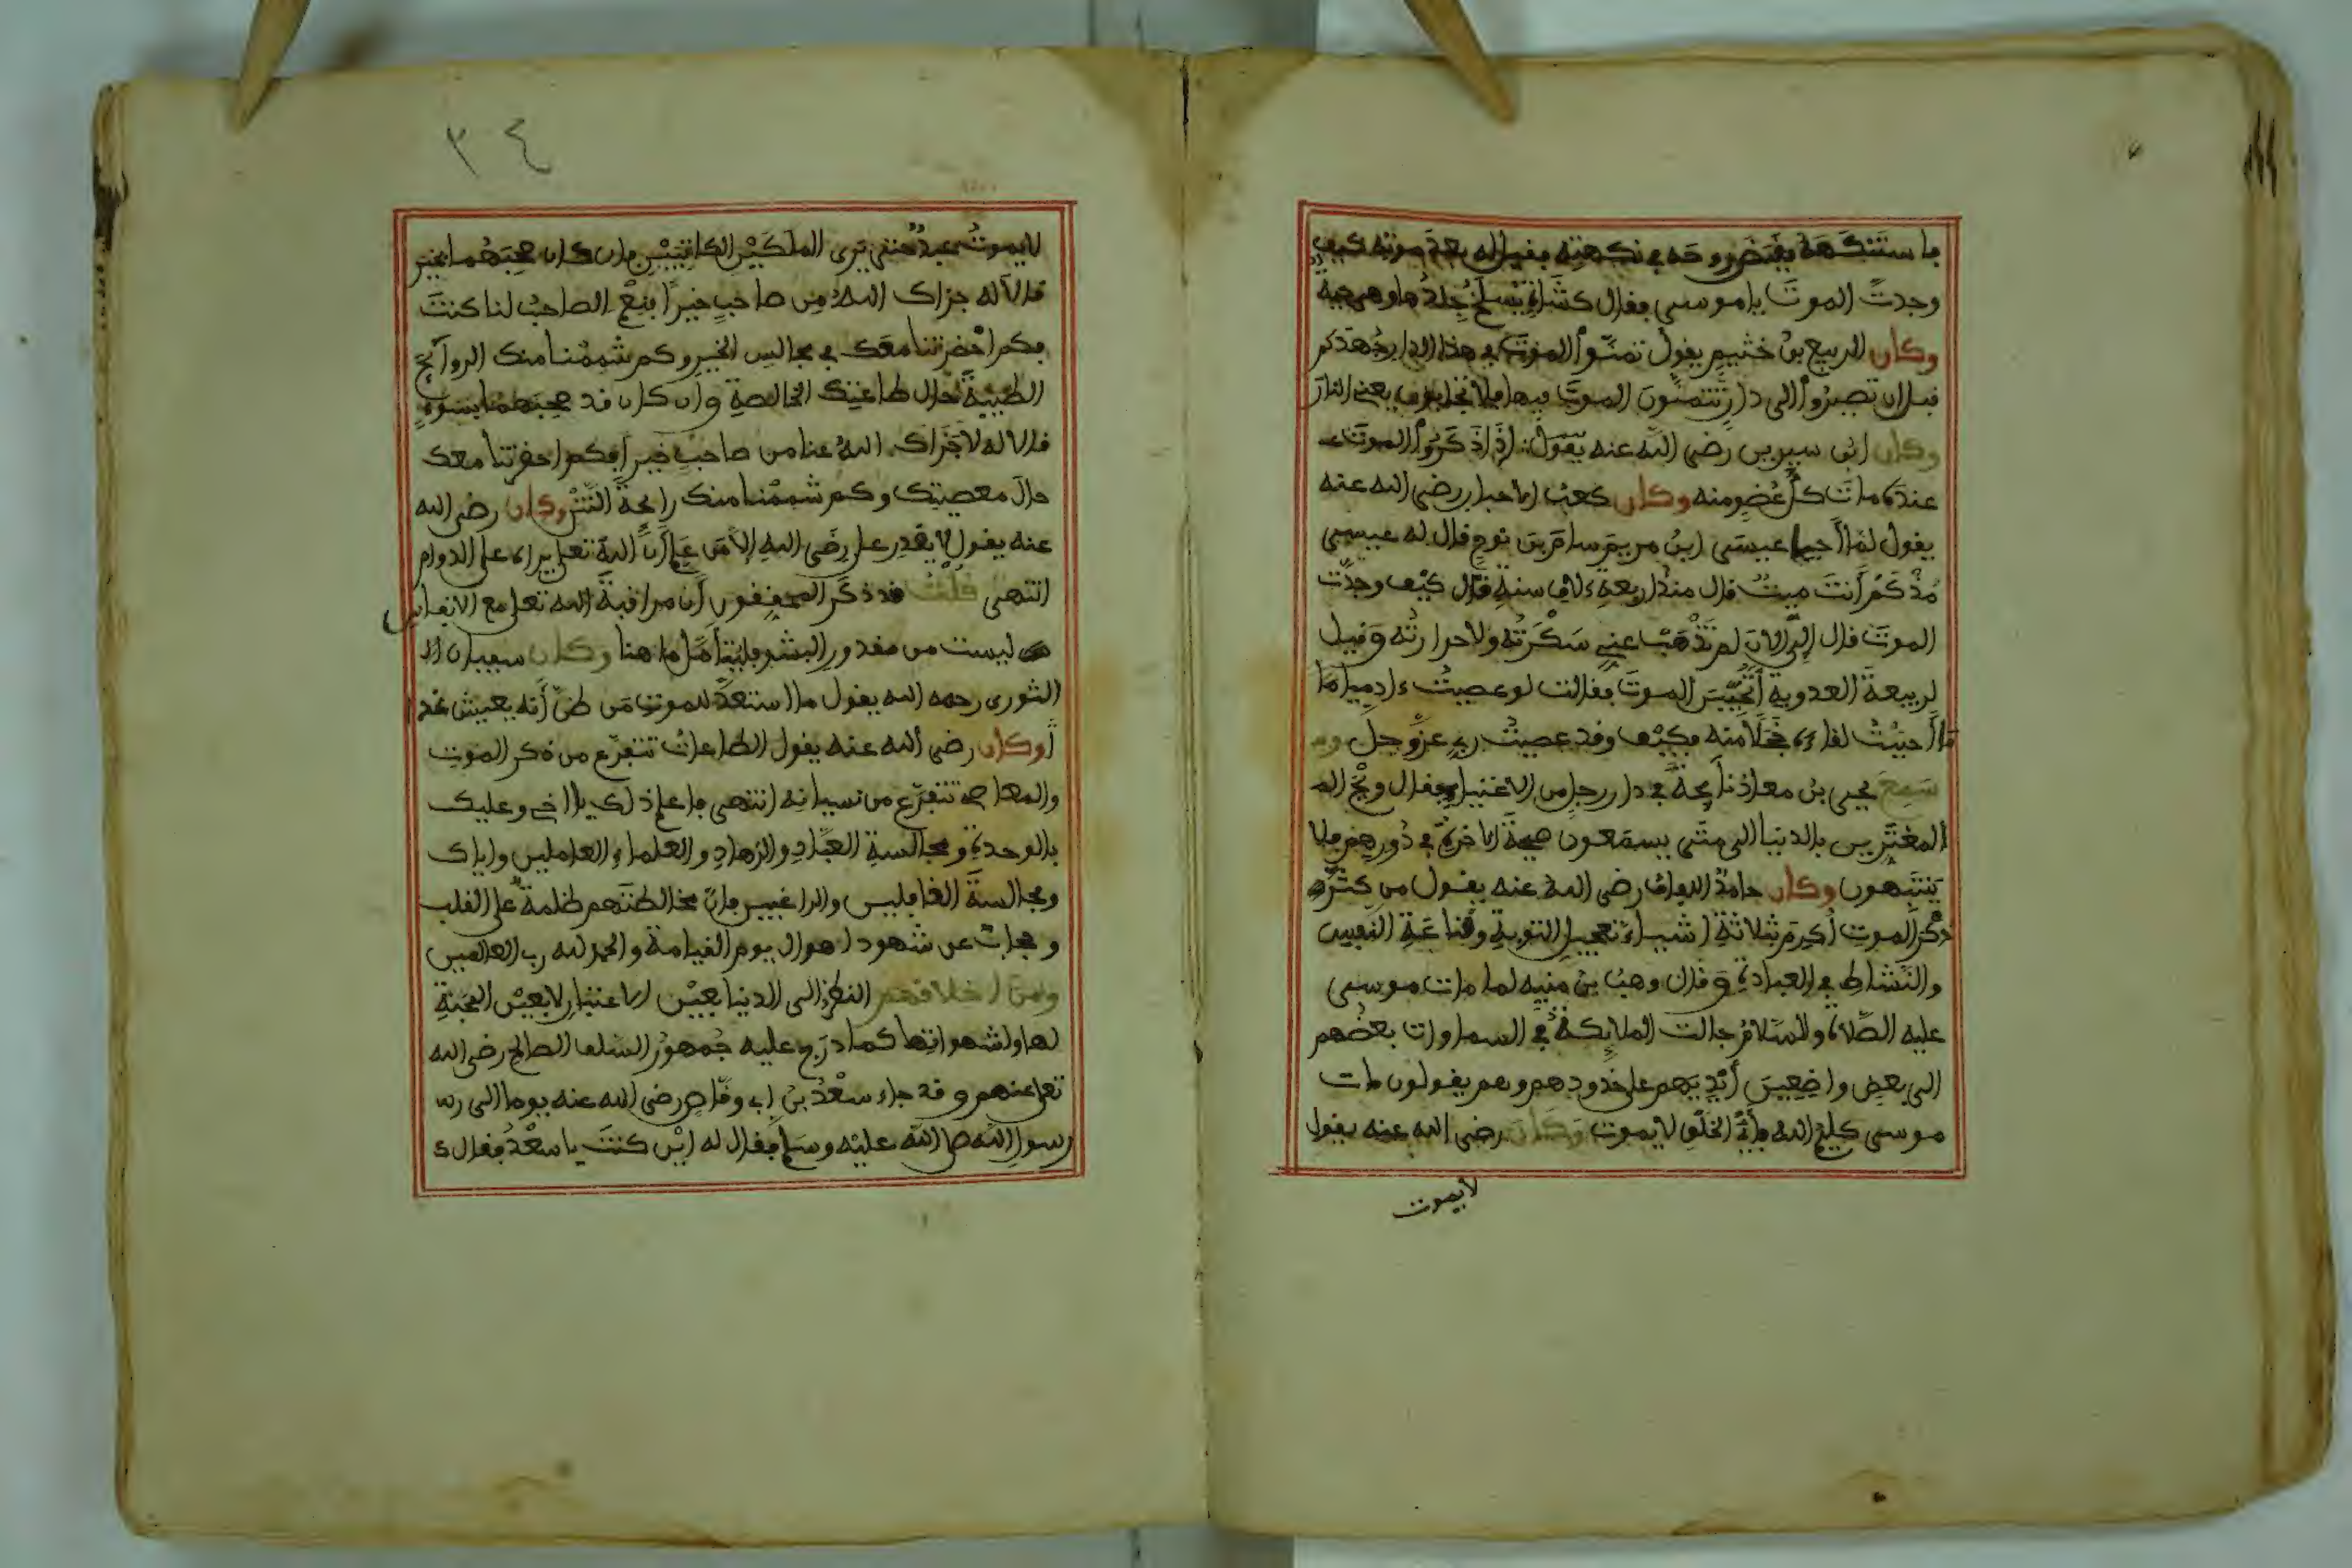 فاستنكهه فقبض روحه في نكهته فقيل له بعد موته كيف
وجدت الموت يا موسى فقال كشاة تسلخ جلدها وهي حية
وكان الربيع بن خثيم يقول تمنوا الموت في هذا الدار
قبل ان تصيروا الى دار تتمنون الموت فيها فلا يعني النار
وكان ابن سيرين رضي الله عنه يقول: إذا ذكروا الموت
عنده مات كل عضو منه وكان كعب الاحبار رضي الله عنه
يقول لما أحيا عيسى ابن مريم سام بن نوح قال له عيسى
مذ كم أنت ميت قال منذ اربعة ءلاف سنة قال كيف وجدت
الموت قال إلى الان لم تذهب عني سكرته ولا حرارته وقيل
لربيعة العدوية أتحبين الموت فقالت لو عصيت ءادميا ما
ما أحببت لقاءه خجلا منه فكيف وقد عصيت ربي عز وجل
سمع يحيى بن معاذ نائحة في دار رجل من الاغنياء فقال ويح
المغترين بالدنيا الى متى يسمعون صيحة الاخرة في دورهم فلا
ينتبهون وكان حامد اللفاف رضي الله عنه يقول من كثرة
ذكر الموت أكرم بثلاثة اشياء تعجيل التوبة وقناعة النفس
والنشاط في العبادة وقال وهب بن منبه لما مات موسى
عليه الصلاة والسلام جالت الملائكة في السماوات بعضهم
الى بعض واضعين أيديهم على خدودهم وهم يقولون مات
موسى كليم الله فأي الخلق لا يموت وكان رضي الله عنه يقول
لا يموت
٣٤
لا يموت عبد حتى يرى الملكين الكاتبين فإن كان صحبهما بخير
قالا له جزاك الله من صاحب خيرا فنعم الصاحب لنا كنت
فكم احضرتنا معك في مجالس الخير وكم شممنا منك الروائح
الطيبة حال طاعتك الخالصة وإن كان قد صحبهما بسوء
قالا له لا جزاك الله عنا من صاحب خيرا فكم احضرتنا معك
حال معصيتك وكم شممنا منك رائحة النتن وكان رضي الله
عنه يقول لا يقدر على رضى الله إلا من علم أن الله تعلى يراه على الدوام
انتهى قلت قد ذكر المحققون أن مراقبة الله تعلى مع الانفاس
ليست من مقدور البشر فليتأمل ما هنا وكان سفيان ال
الثوري رحمه الله يقول ما استعد للموت من ظن أنه يعيش غدا
وكان رضي الله عنه يقول الطاعات تتفرع من ذكر الموت
والمعاصي تتفرع من نسيانه انتهى فاعلم ذلك يا اخي وعليك
بالوحدة ومجالسة العباد والزهاد والعلماء العاملين واياك
ومجالسة الغافلين والراغبين فان مخالطتهم ظلمة على القلب
وحجاب عن شهود اهوال يوم القيامة والحمد لله رب العالمين
ومن اخلاقهم النظر الى الدنيا بعين الاعتبار لا بعين المحبة
لها ولشهواتها كما درج عليه جمهور السلف الصالح رضي الله
تعلى عنهم وقد جاء سعد بن ابي وقاص رضي الله عنه يوما الى رس
رسول الله صلى الله عليه وسلم فقال له اين كنت يا سعد فقال ء